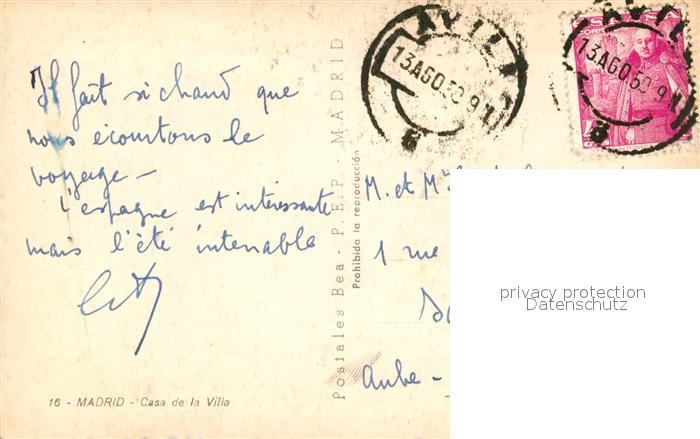 Il fait si chaud que
nous écourtons le
voyage -
L'espagne est intéressante
mais l'été intenable
16 - MADRID - Casa de la Villa
Postales Bea. - P.E.P. - MADRID
Prohibida la reproducción
AVILA
13 AGO.50 9
AVILA
13 AGO.50 9
CORREOS
M. et M
1 rue
Aube -
privacy protection
Datenschutz